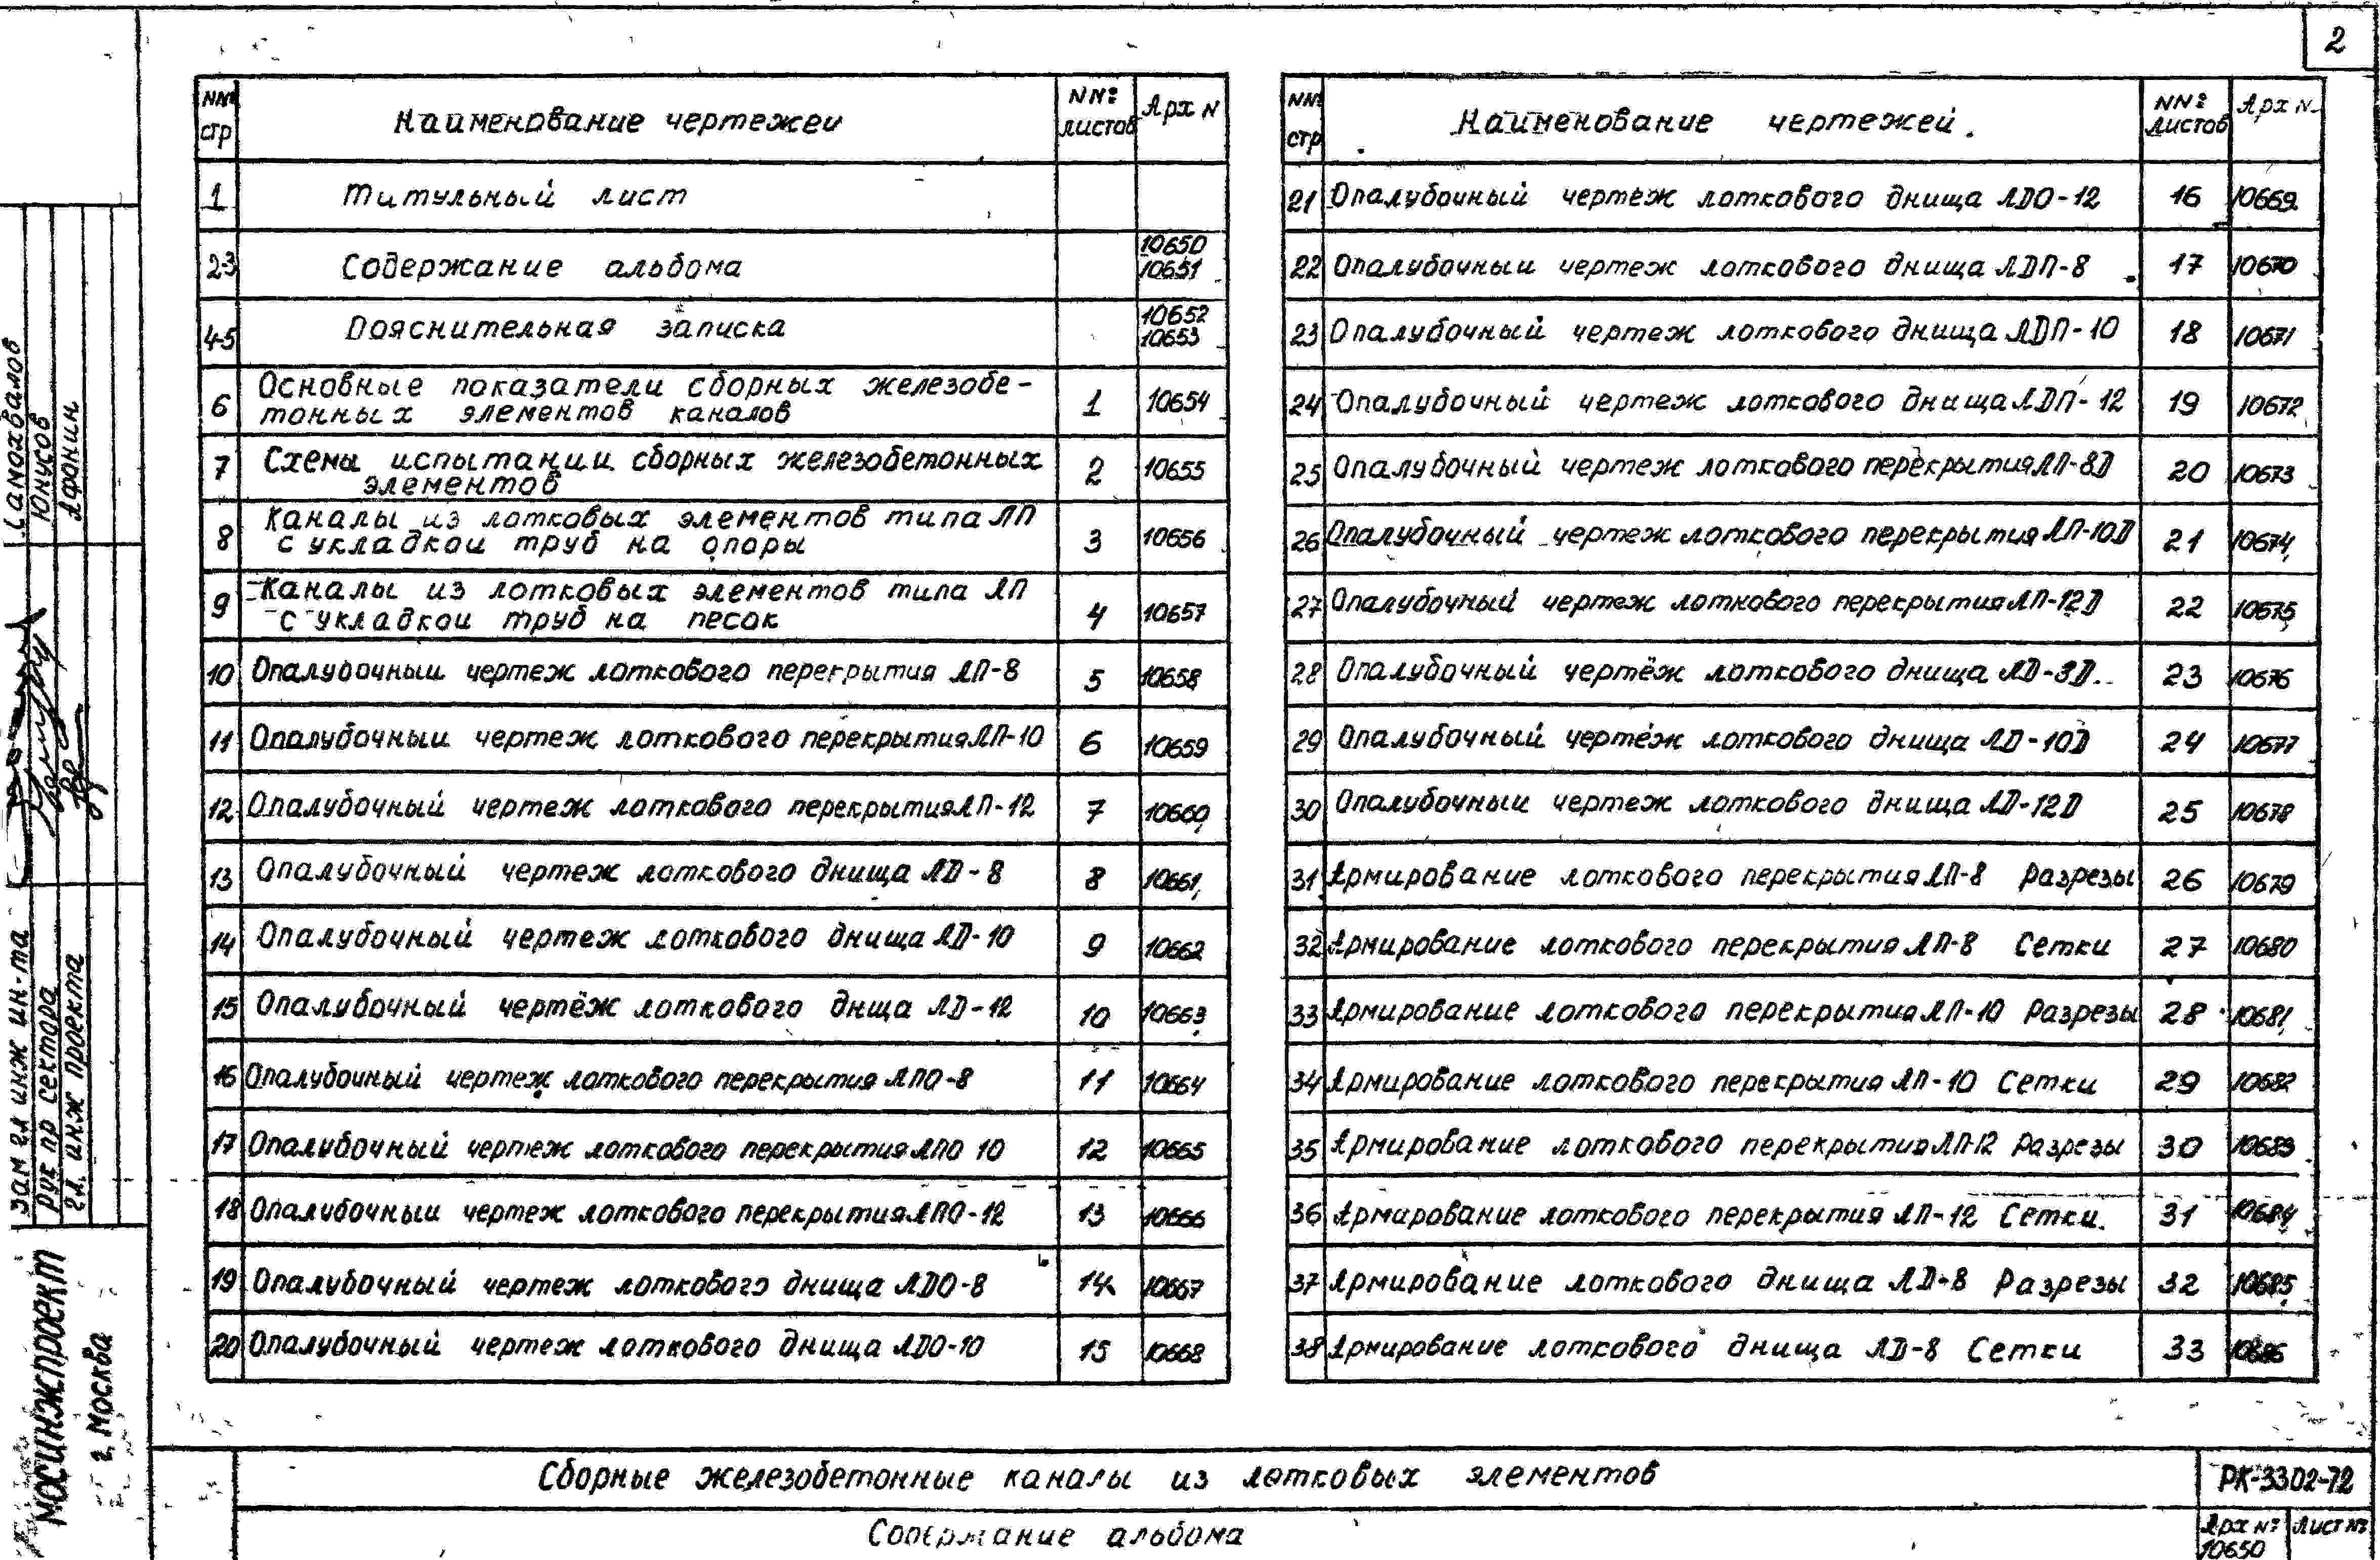 2
NN№ стр Наименование чертежеи NN№ листов Арх N
1 Титульный лист
2-3 Содержание альбома 10650 10651
4-5 Пояснительная записка 10652 10653
6 Основные показатели сборных железобе-
тонных элементов каналов 1 10654
7 Схемы испытании сборных железобетонных
элементов 2 10655
8 Каналы из лотковых элементов типа ЛП
с укладкои труб на опоры 3 10656
9 Каналы из лотковых элементов типа ЛП
с укладкои труб на песок 4 10657
10 Опалубочныи чертеж лоткового перекрытия ЛП-8 5 10658
11 Опалубочныи чертеж лоткового перекрытия ЛП-10 6 10659
12 Опалубочный чертеж лоткового перекрытия ЛП-12 7 10660
13 Опалубочный чертеж лоткового днища ЛД-8 8 10661
14 Опалубочный чертеж лоткового днища ЛД-10 9 10662
15 Опалубочный чертёж лоткового днща ЛД-12 10 10663
16 Опалубочный чертеж лоткового перекрытия ЛПО-8 11 10664
17 Опалубочный чертеж лоткового перекрытия ЛПО 10 12 10665
18 Опалубочныи чертеж лоткового перекрытия ЛПО-12 13 10666
19 Опалубочный чертеж лоткового днища ЛДО-8 14 10667
20 Опалубочный чертеж лоткового днища ЛДО-10 15 10668
NN№ стр Наименование чертежей. NN№ листов Арх N
21 Опалубочный чертеж лоткового днища ЛДО-12 16 10669
22 Опалубочныи чертеж лоткового днища ЛДП-8 17 10670
23 Опалубочный чертеж лоткового днища ЛДП-10 18 10671
24 Опалубочный чертеж лоткового днища ЛДП-12 19 10672
25 Опалубочный чертеж лоткового перекрытия ЛП-8Д 20 10673
26 Опалубочный чертеж лоткового перекрытия ЛП-10Д 21 10674
27 Опалубочный чертеж лоткового перекрытия ЛП-12Д 22 10675
28 Опалубочный чертёж лоткового днища ЛД-8Д 23 10676
29 Опалубочный чертёж лоткового днища ЛД-10Д 24 10677
30 Опалубочныи чертеж лоткового днища ЛД-12Д 25 10678
31 Армирование лоткового перекрытия ЛП-8 Разрезы 26 10679
32 Армирование лоткового перекрытия ЛП-8 Сетки 27 10680
33 Армирование лоткового перекрытия ЛП-10 Разрезы 28 10681
34 Армирование лоткового перекрытия ЛП-10 Сетки 29 10682
35 Армирование лоткового перекрытия ЛП-12 Разрезы 30 10683
36 Армирование лоткового перекрытия ЛП-12 Сетки. 31 10684
37 Армирование лоткового днища ЛД-8 Разрезы 32 10685
38 Армирование лоткового днища ЛД-8 Сетки 33 10686
Самохвалов
Юнусов
Афонин
Зам гл инж ин-та
Рук пр сектора
Гл. инж проекта
Мосинжпроект
г. Москва
Сборные железобетонные каналы из лотковых элементов
РК-3302-72
Содержание альбома
Арх № 10650
Лист №